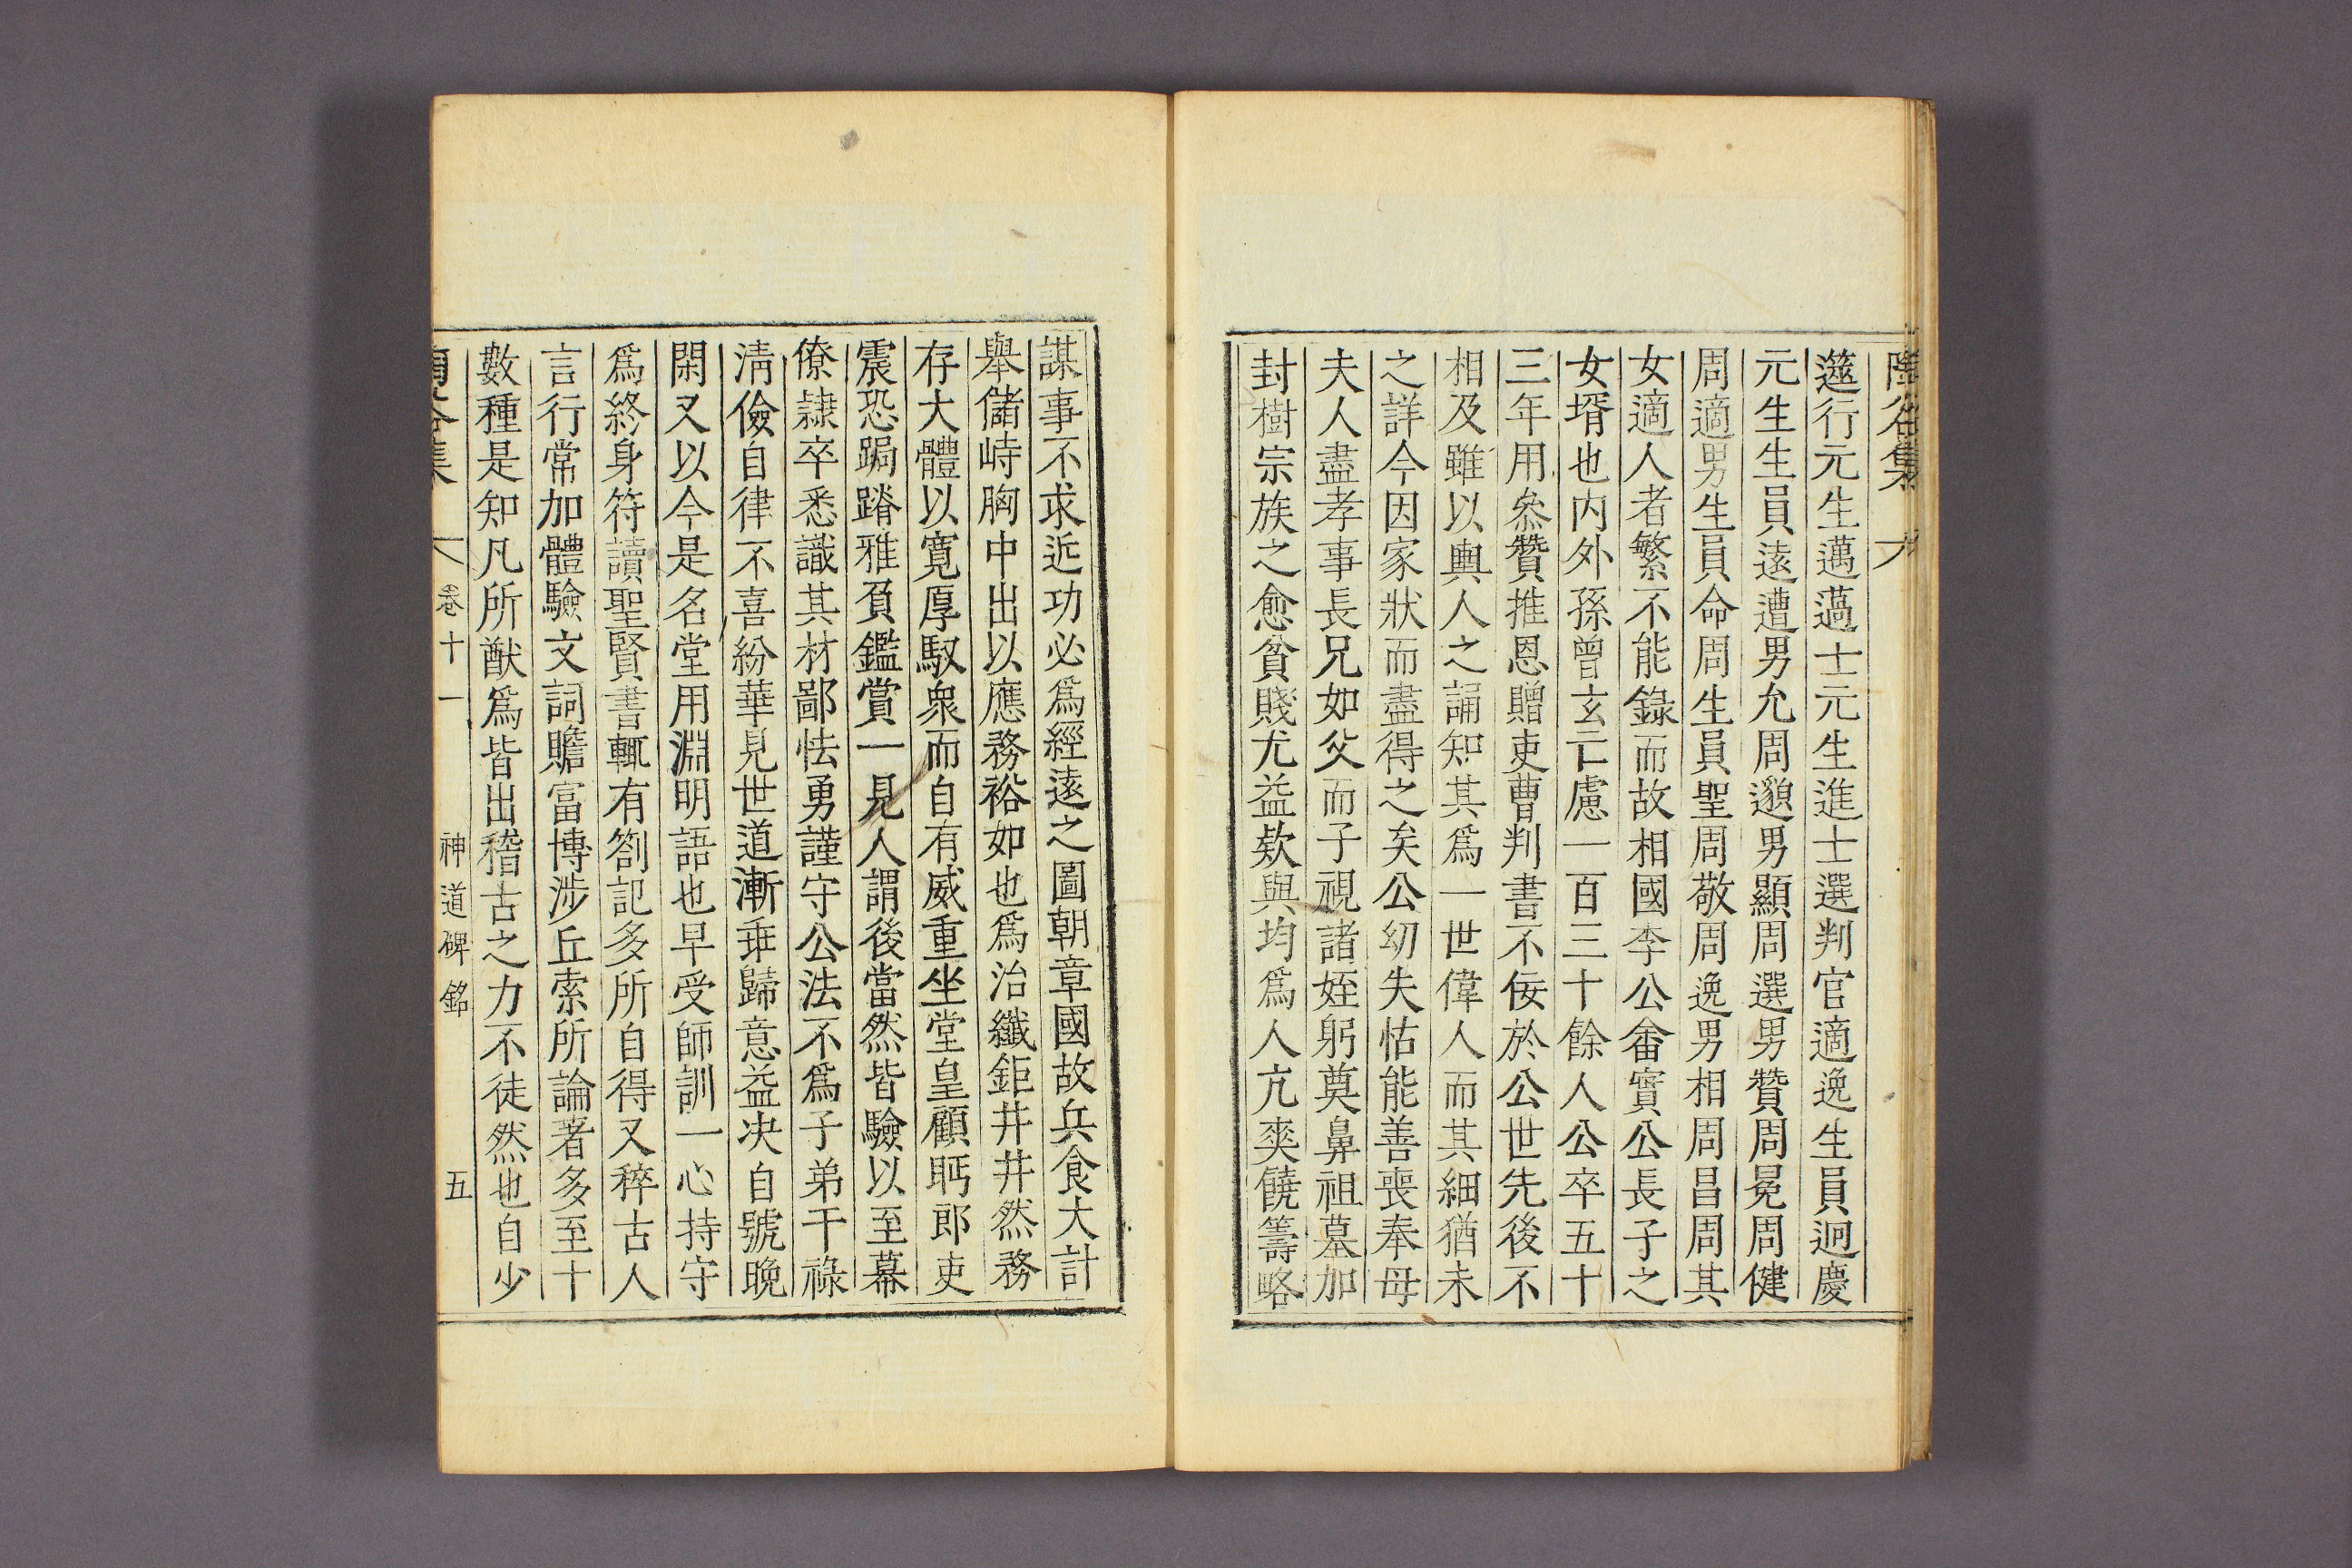 陶谷集
簉行元生邁薖士元生進士選判官適逸生員迥慶
元生生員遠遭男允周邈男顯周選男贊周冕周健
周適男生員命周生員聖周敬周逸男相周昌周其
女適人者繁不能錄而故相國李公畬實公長子之
女壻也内外孫曾玄亡慮一百三十餘人公卒五十
三年用叅贊推恩贈吏曹判書不佞於公世先後不
相及雖以輿人之誦知其爲一世偉人而其細猶未
之詳今因家狀而盡得之矣公幼失怙能善喪奉母
夫人盡孝事長兄如父而子視諸姪躬奠鼻祖墓加
封樹宗族之愈貧賤尤益欵與均爲人亢爽饒籌略
謀事不求近功必爲經遠之圖朝章國故兵食大計
舉儲峙胸中出以應務裕如也爲治纖鉅井井然務
存大體以寬厚馭衆而自有威重坐堂皇顧眄郎吏
震恐跼蹐雅負鑑賞一見人謂後當然皆驗以至幕
僚隷卒悉識其材鄙怯勇謹守公法不爲子弟干祿
淸儉自律不喜紛華見世道漸乖歸意益决自號晚
閑又以今是名堂用淵明語也早受師訓一心持守
爲終身符讀聖賢書輒有劄記多所自得又稡古人
言行常加體驗文詞贍富博涉丘索所論著多至十
數種是知凡所猷爲皆出稽古之力不徒然也自少
陶谷集 卷十一 神道碑銘 五